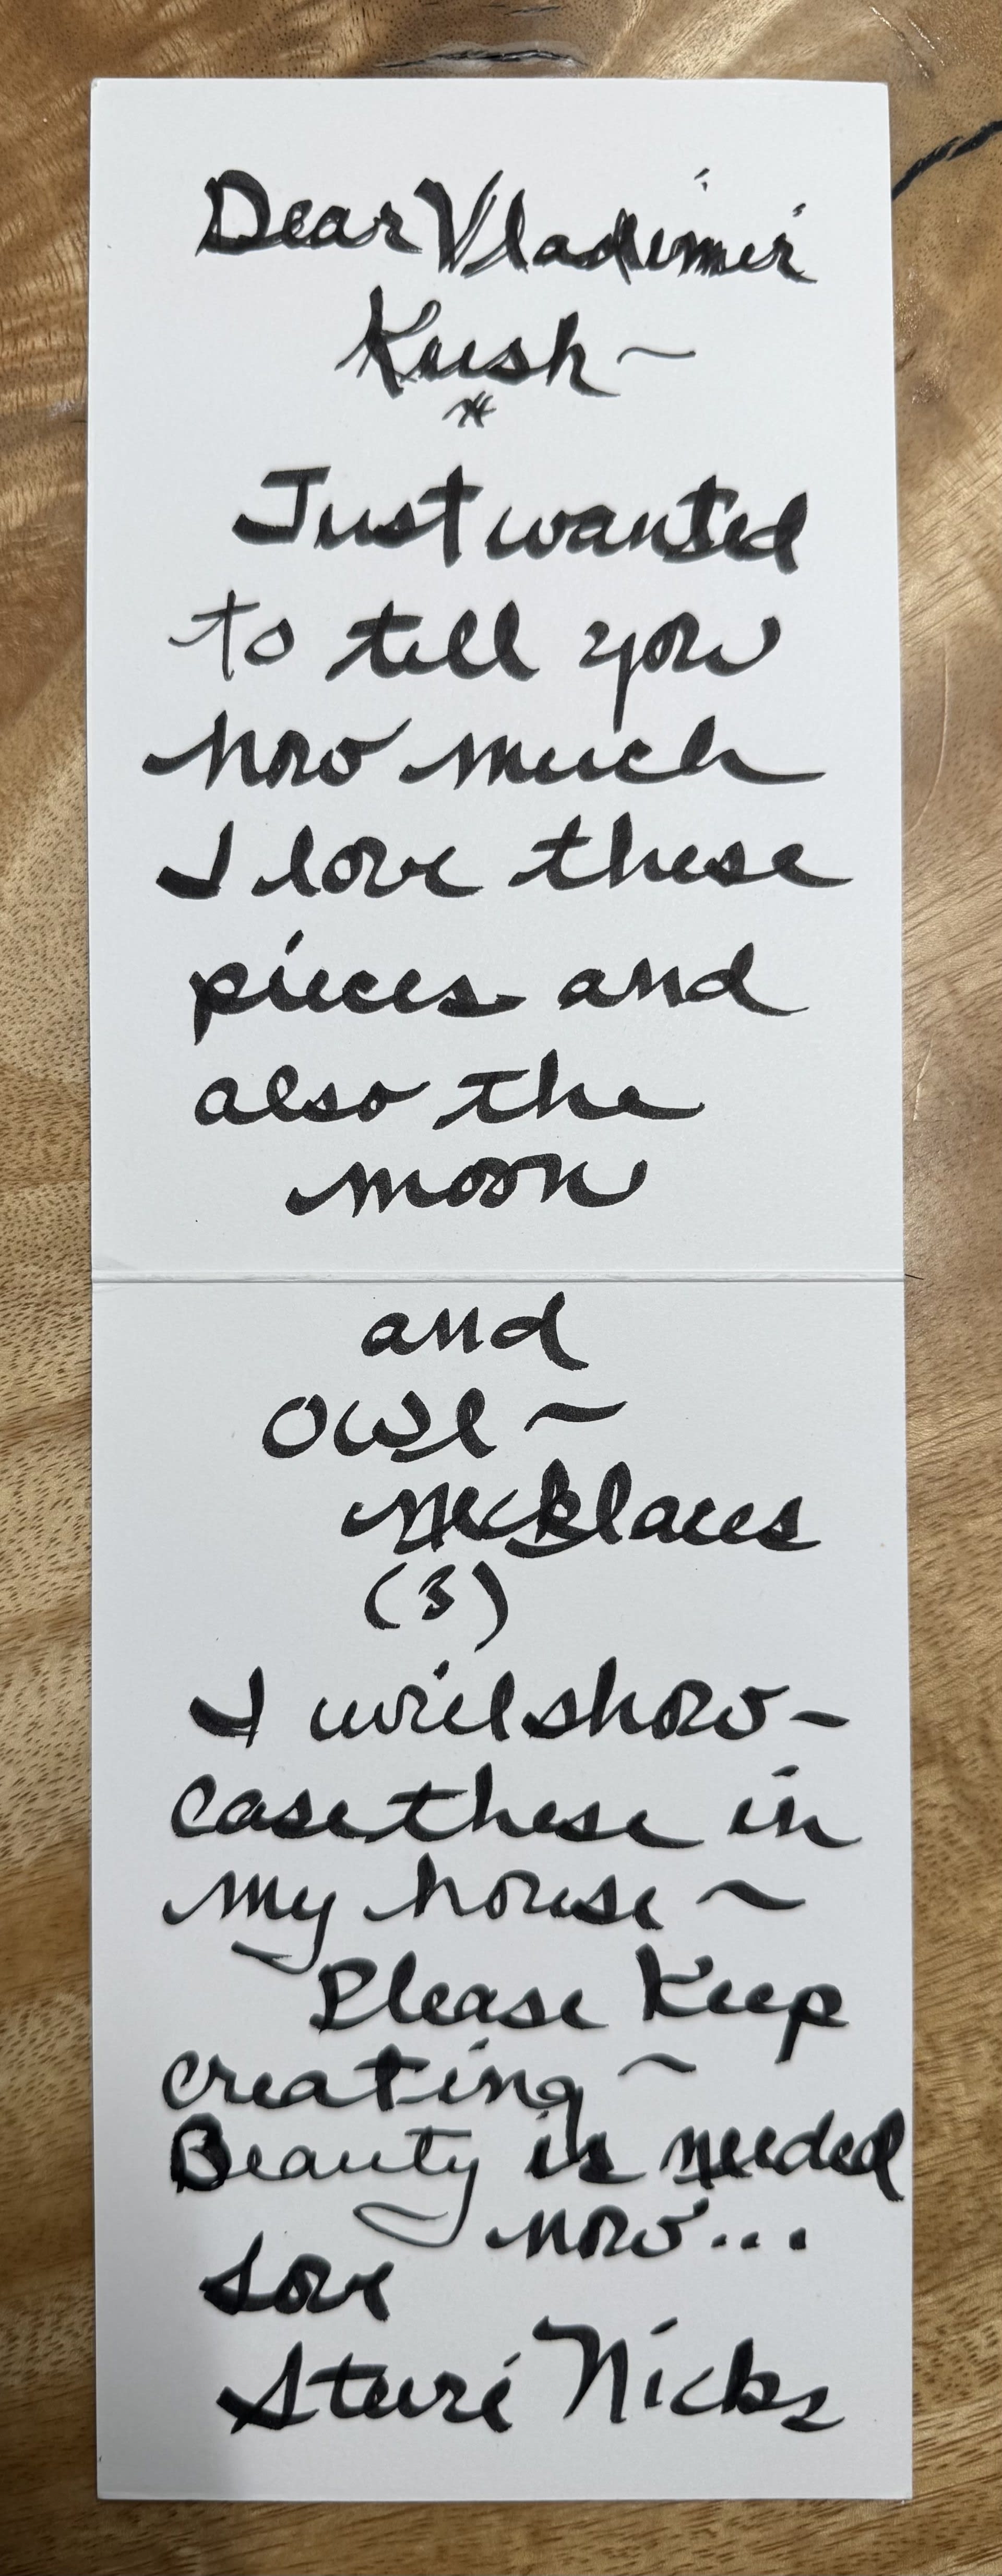 Dear Vladimir
Kush ~
*
Just wanted
to tell you
how much
I love these
pieces and
also the
moon
and
owl ~
necklaces
(3)
I will show-
case these in
my house ~
Please Keep
creating ~
Beauty is needed
now...
Love
Stevie Nicks